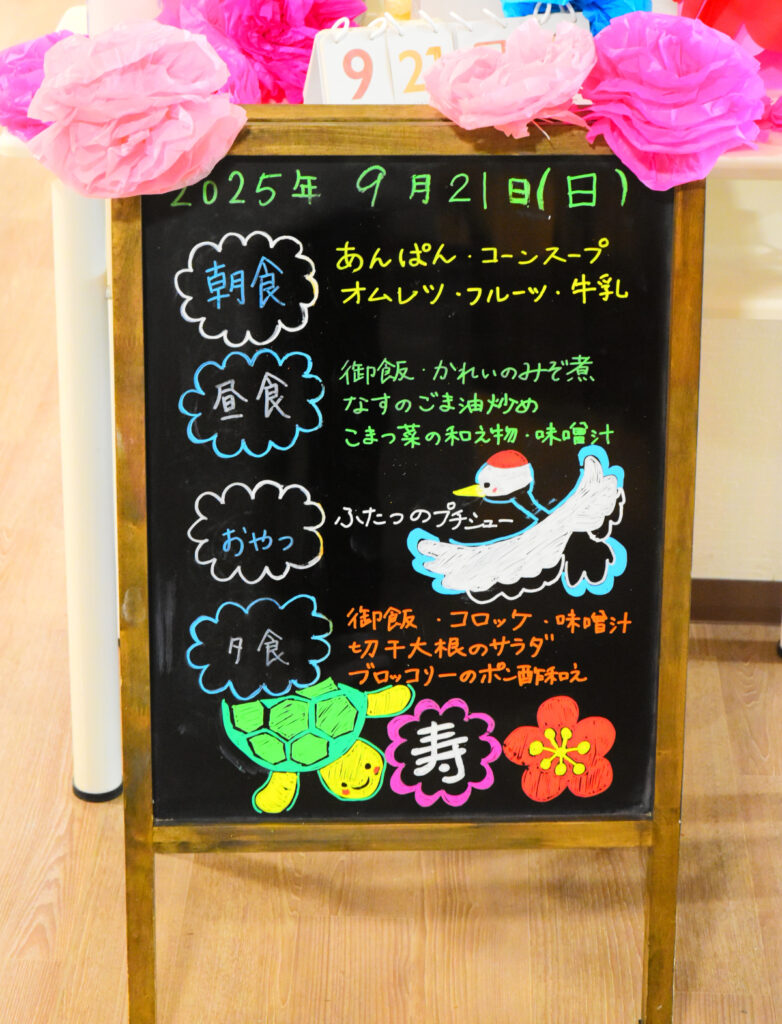 9 21
2025年 9月21日(日)
朝食
あんぱん・コーンスープ
オムレツ・フルーツ・牛乳
昼食
御飯・かれいのみぞ煮
なすのごま油炒め
こまつ菜の和え物・味噌汁
おやつ
ふたつのプチシュー
夕食
御飯・コロッケ・味噌汁
切干大根のサラダ
ブロッコリーのポン酢和え
寿